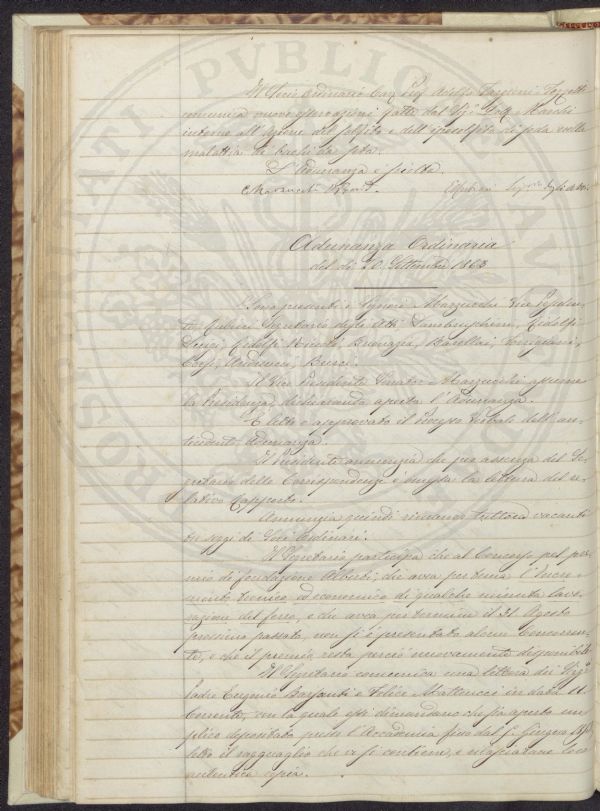 Il Socio Ordinario Cav. Prof. Adolfo Targioni Tozzetti
comunica nuove osservazioni fatte dal Sig. Dott.
intorno all'azione del solfito e dell'iposolfito di soda sulla
malattia de' bachi da seta.
L'Adunanza è sciolta.
Adunanza Ordinaria
del dì 20 Settembre 1863
Sono presenti i Signori Marzucchi Vice Presiden-
te, Segretario degli Atti, Lambruschini, Ridolfi
Luigi, Ridolfi Niccolò,
Il Vice Presidente Senatore Marzucchi assume
la Presidenza, dichiarando aperta l'Adunanza.
È letto e approvato il Processo Verbale dell'an-
tecedente Adunanza.
Il Presidente annunzia che per assenza del Se-
gretario delle Corrispondenze è omessa la lettura del re-
lativo Rapporto.
Annunzia quindi rimaner tuttora vacanti
seggi di Soci Ordinari.
Il Segretario partecipa che al Concorso pel pre-
mio di fondazione Alberti, che avea per tema l'Incre-
mento tecnico, ed economico di qualche minuta lavo-
razione del ferro, e che avea per termine il 31 Agosto
prossimo passato, non si è presentato alcun Concorren-
te, e che il premio resta perciò nuovamente disponibile
Il Segretario comunica una lettera dei Sigg.
Padre Eugenio Barsanti e Felice Matteucci in data 11.
Corrente, con la quale essi dimandano che sia aperto un
plico depositato presso l'Accademia fino dal 5. Giugno
letto il ragguaglio che vi si contiene, e rilasciatane loro
autentica copia.